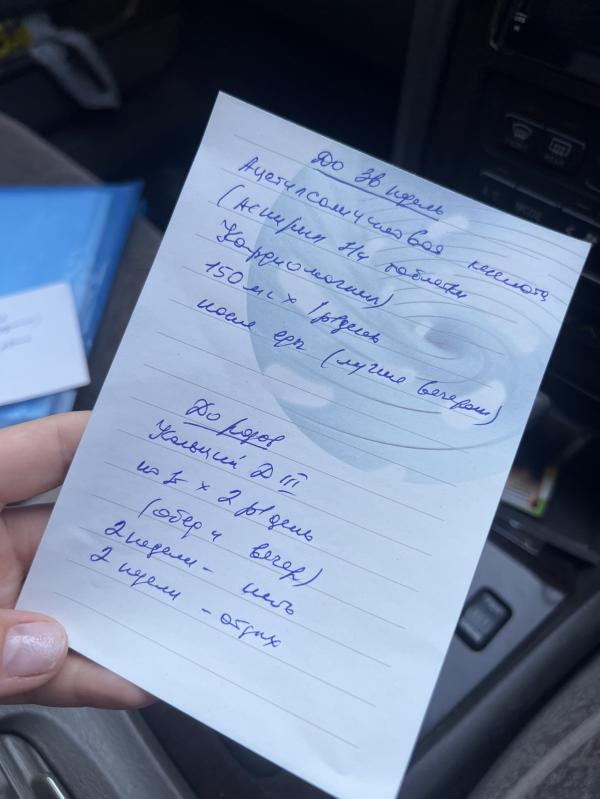 До 36 недель
Ацетилсалициловая кислота
(Аспирин 1/4 таблетки
Кардиомагнил)
150 мг х 1 р/день
после еды (лучше вечером)
До родов
Кальций Д III
по 1т х 2 р/день
(обед и вечер)
2 недели - пить
2 недели - отдых